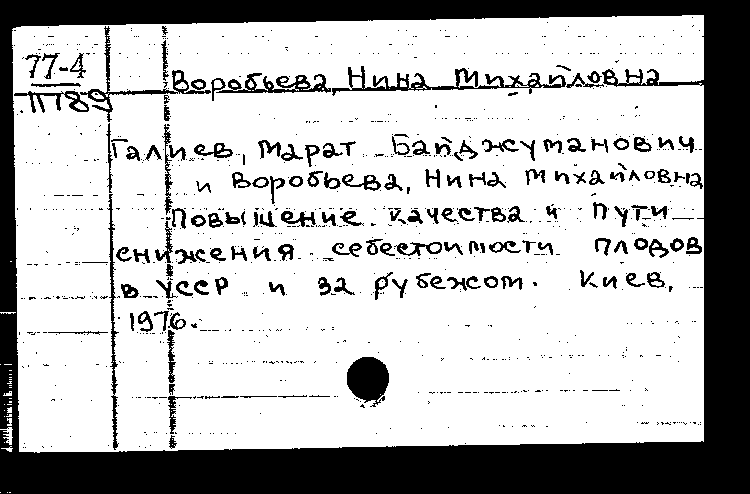 77-4
11789
Воробьева, Нина Михайловна
Галиев, Марат Байджуманович
и Воробьева, Нина Михайловна
Повышение качества и пути
снижения себестоимости плодов
в УССР и за рубежом. Киев,
1976.